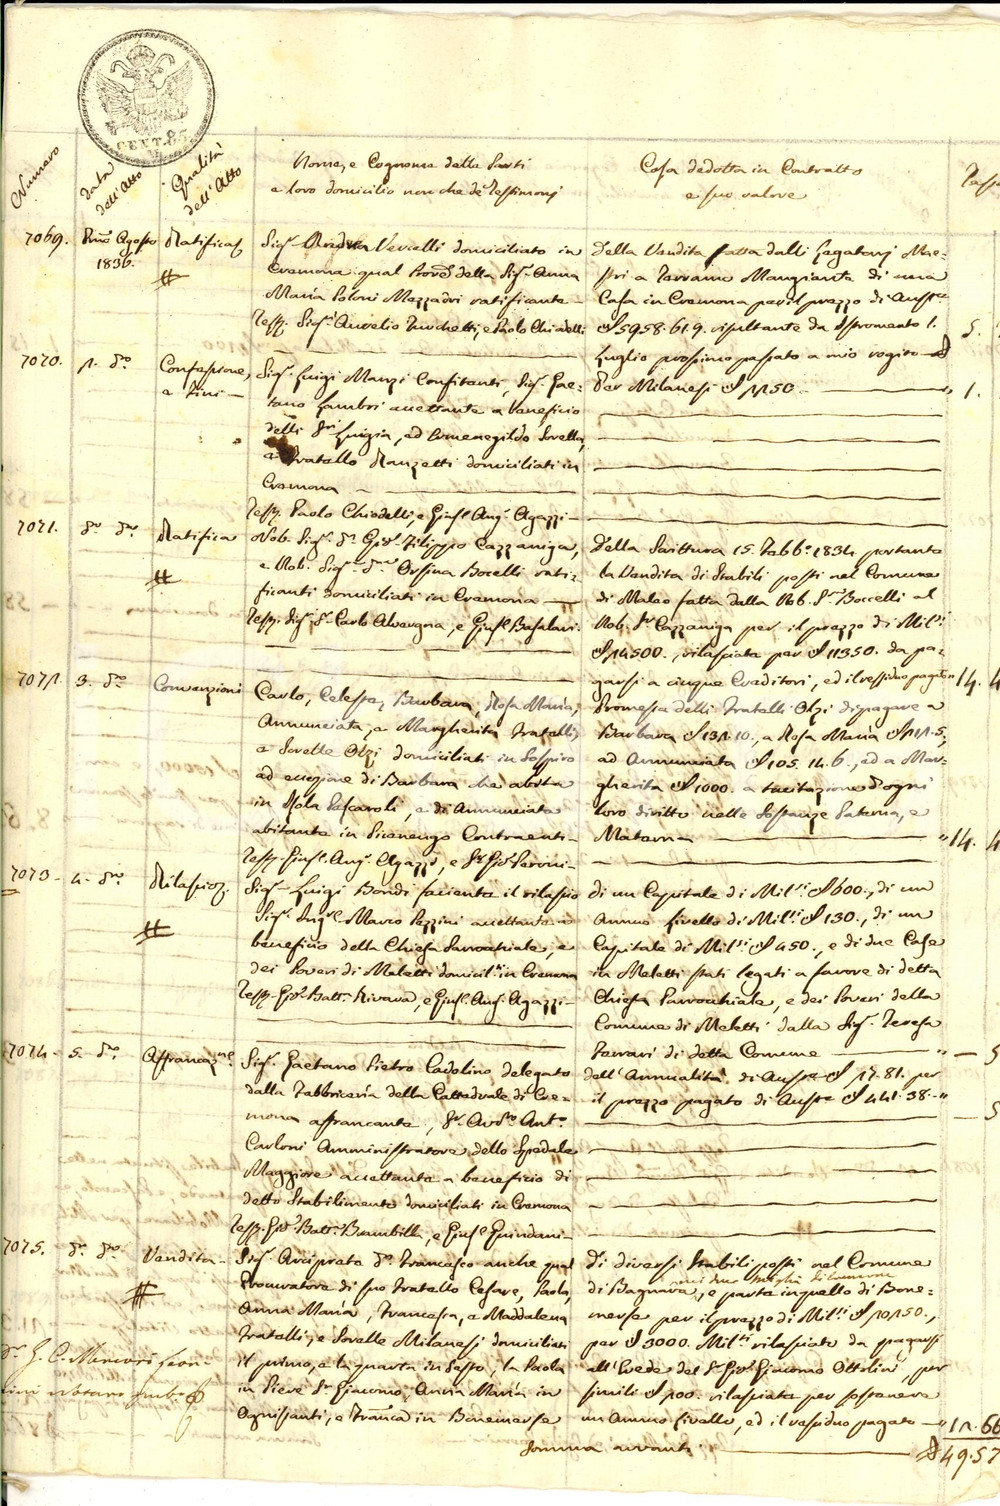 CENT. 85
Numero
data dell'Atto
Qualità dell'Atto
Nome, e Cognome delle Parti
e loro domicilio non che de' Testimonj
Cosa dedotta in Contratto
e suo valore
Tassa
7069.
Agosto
1836.
Ratifica
Sig.r Vercelli domiciliato in
Cremona qual della Sig.a Anna
Maria Poloni Mazzadri ratificante
Test. Sig.r Aurelio Turchetti, e Paolo Chiodelli
Della Vendita fatta dalli Legatarj Mae-
stri a Terramo Mangiante di una
Casa in Cremona per il prezzo di Aust.e
£ 5958. 61. 9. risultante da Istromento 1.
Luglio prossimo passato a mio rogito
5.
7070.
d.to
Confessione,
e Fini
Sig.r Luigi Manzi Confitente, Sig.r Gae-
tano Lambri accettante a beneficio
delli Luigia, ed Ermenegildo Sorella,
e Fratello Ranzetti domiciliati in
Cremona
Test. Paolo Chiodelli, e Gius.e Ang.o Agazzi
Per Milanesi £ 1250.
" 1.
7071.
d.o d.to
Ratifica
Nob. Sig.r D.n Gio. Filippo Cazzaniga,
e Nob. Sig.a D.na Orsina Bocelli rati-
ficanti domiciliati in Cremona
Test. Sig.r D.r Carlo Alvergna, e Gius.e Basalari
Della Scrittura 15. Febb.o 1834 portante
la Vendita di Stabili posti nel Comune
di Maleo fatta dalla Nob. S.ra Boccelli al
Nob. S.r Cazzaniga per il prezzo di Mil.i
£ 14500., rilasciate per £ 11350. da pa-
garsi a cinque Creditori, ed il residuo pagato
" 14. 4
7072.
3. d.to
Convenzioni
Carlo, Celeste, Barbara, Rosa Maria,
Annunciata, e Margherita Fratelli,
e Sorelle Olzi domiciliati in Sospiro
ad eccezione di Barbara che abita
in Isola Pescaroli, e di Annunciata
abitante in Picenengo Contraenti
Test. Gius.e Ang.o Agazzi, e
Promessa delli Fratelli Olzi di pagare a
Barbara £ 132. 10., a Rosa Maria £ 212. 5.,
ad Annunciata £ 105. 14. 6., ed a Mar-
gherita £ 1000. a tacitazione d'ogni
loro diritto nelle Sostanze Paterna, e
Materna
" 14. 4
7073
4. d.to
Rilascio
Sig.r Luigi Bondi facente il rilascio
Sig.r Ing.e Marco Pezzini accettante a
beneficio della Chiesa Parrocchiale, e
dei Poveri di Meletti domicil.ti in Cremona
Test. Gio. Batt.a Rivara, e Gius.e Ang.o Agazzi
di un Capitale di Mil.i £ 600., di un
Annuo livello di Mil.i £ 130., di un
Capitale di Mil.i £ 450., e di due Case
in Meletti stati legati a favore di detta
Chiesa Parrocchiale, e dei Poveri della
Comune di Meletti dalla Sig.a Teresa
Ferrari di detta Comune
" — 5
7074
5. d.to
Affrancaz.ne
Sig.r Gaetano Pietro Cadolino delegato
dalla Fabbriceria della Cattedrale di Cre-
mona affrancante, Ant.o
Carloni Amministratore dello Spedale
Maggiore accettante a beneficio di
detto Stabilimento domiciliati in Cremona
Test. Gio. Batt.a Brambilla, e Gius.e Guindani
dell'Annualità di Aust.e £ 17. 81. per
il prezzo pagato di Aust.e £ 441. 38.
" — 5
7075.
d.o d.to
Vendita
Sig.r Arciprete D.n Francesco anche qual
Procuratore di suo Fratello Cesare, Paola,
Anna Maria, Francesca, e Maddalena
Fratelli, e Sorelle Milanesi domiciliati
il primo, e la quarta in Sesto, la Paola
in Pieve S.n Giacomo, Anna Maria in
Ognissanti, e Franc.a in Bonemerse
Di diversi Stabili posti nel Comune
di Bagnara, e parte in quello di Bone-
merse per il prezzo di Mil.i £ 10150.,
per £ 3000. Mil.i rilasciate da pagarsi
all'Erede del S.r Gio. Giacomo Ottolini, per
simili £ 200. rilasciate per sostenere
un Annuo livello, ed il residuo pagato
" 12. 66
Somma avanti
£ 49. 57